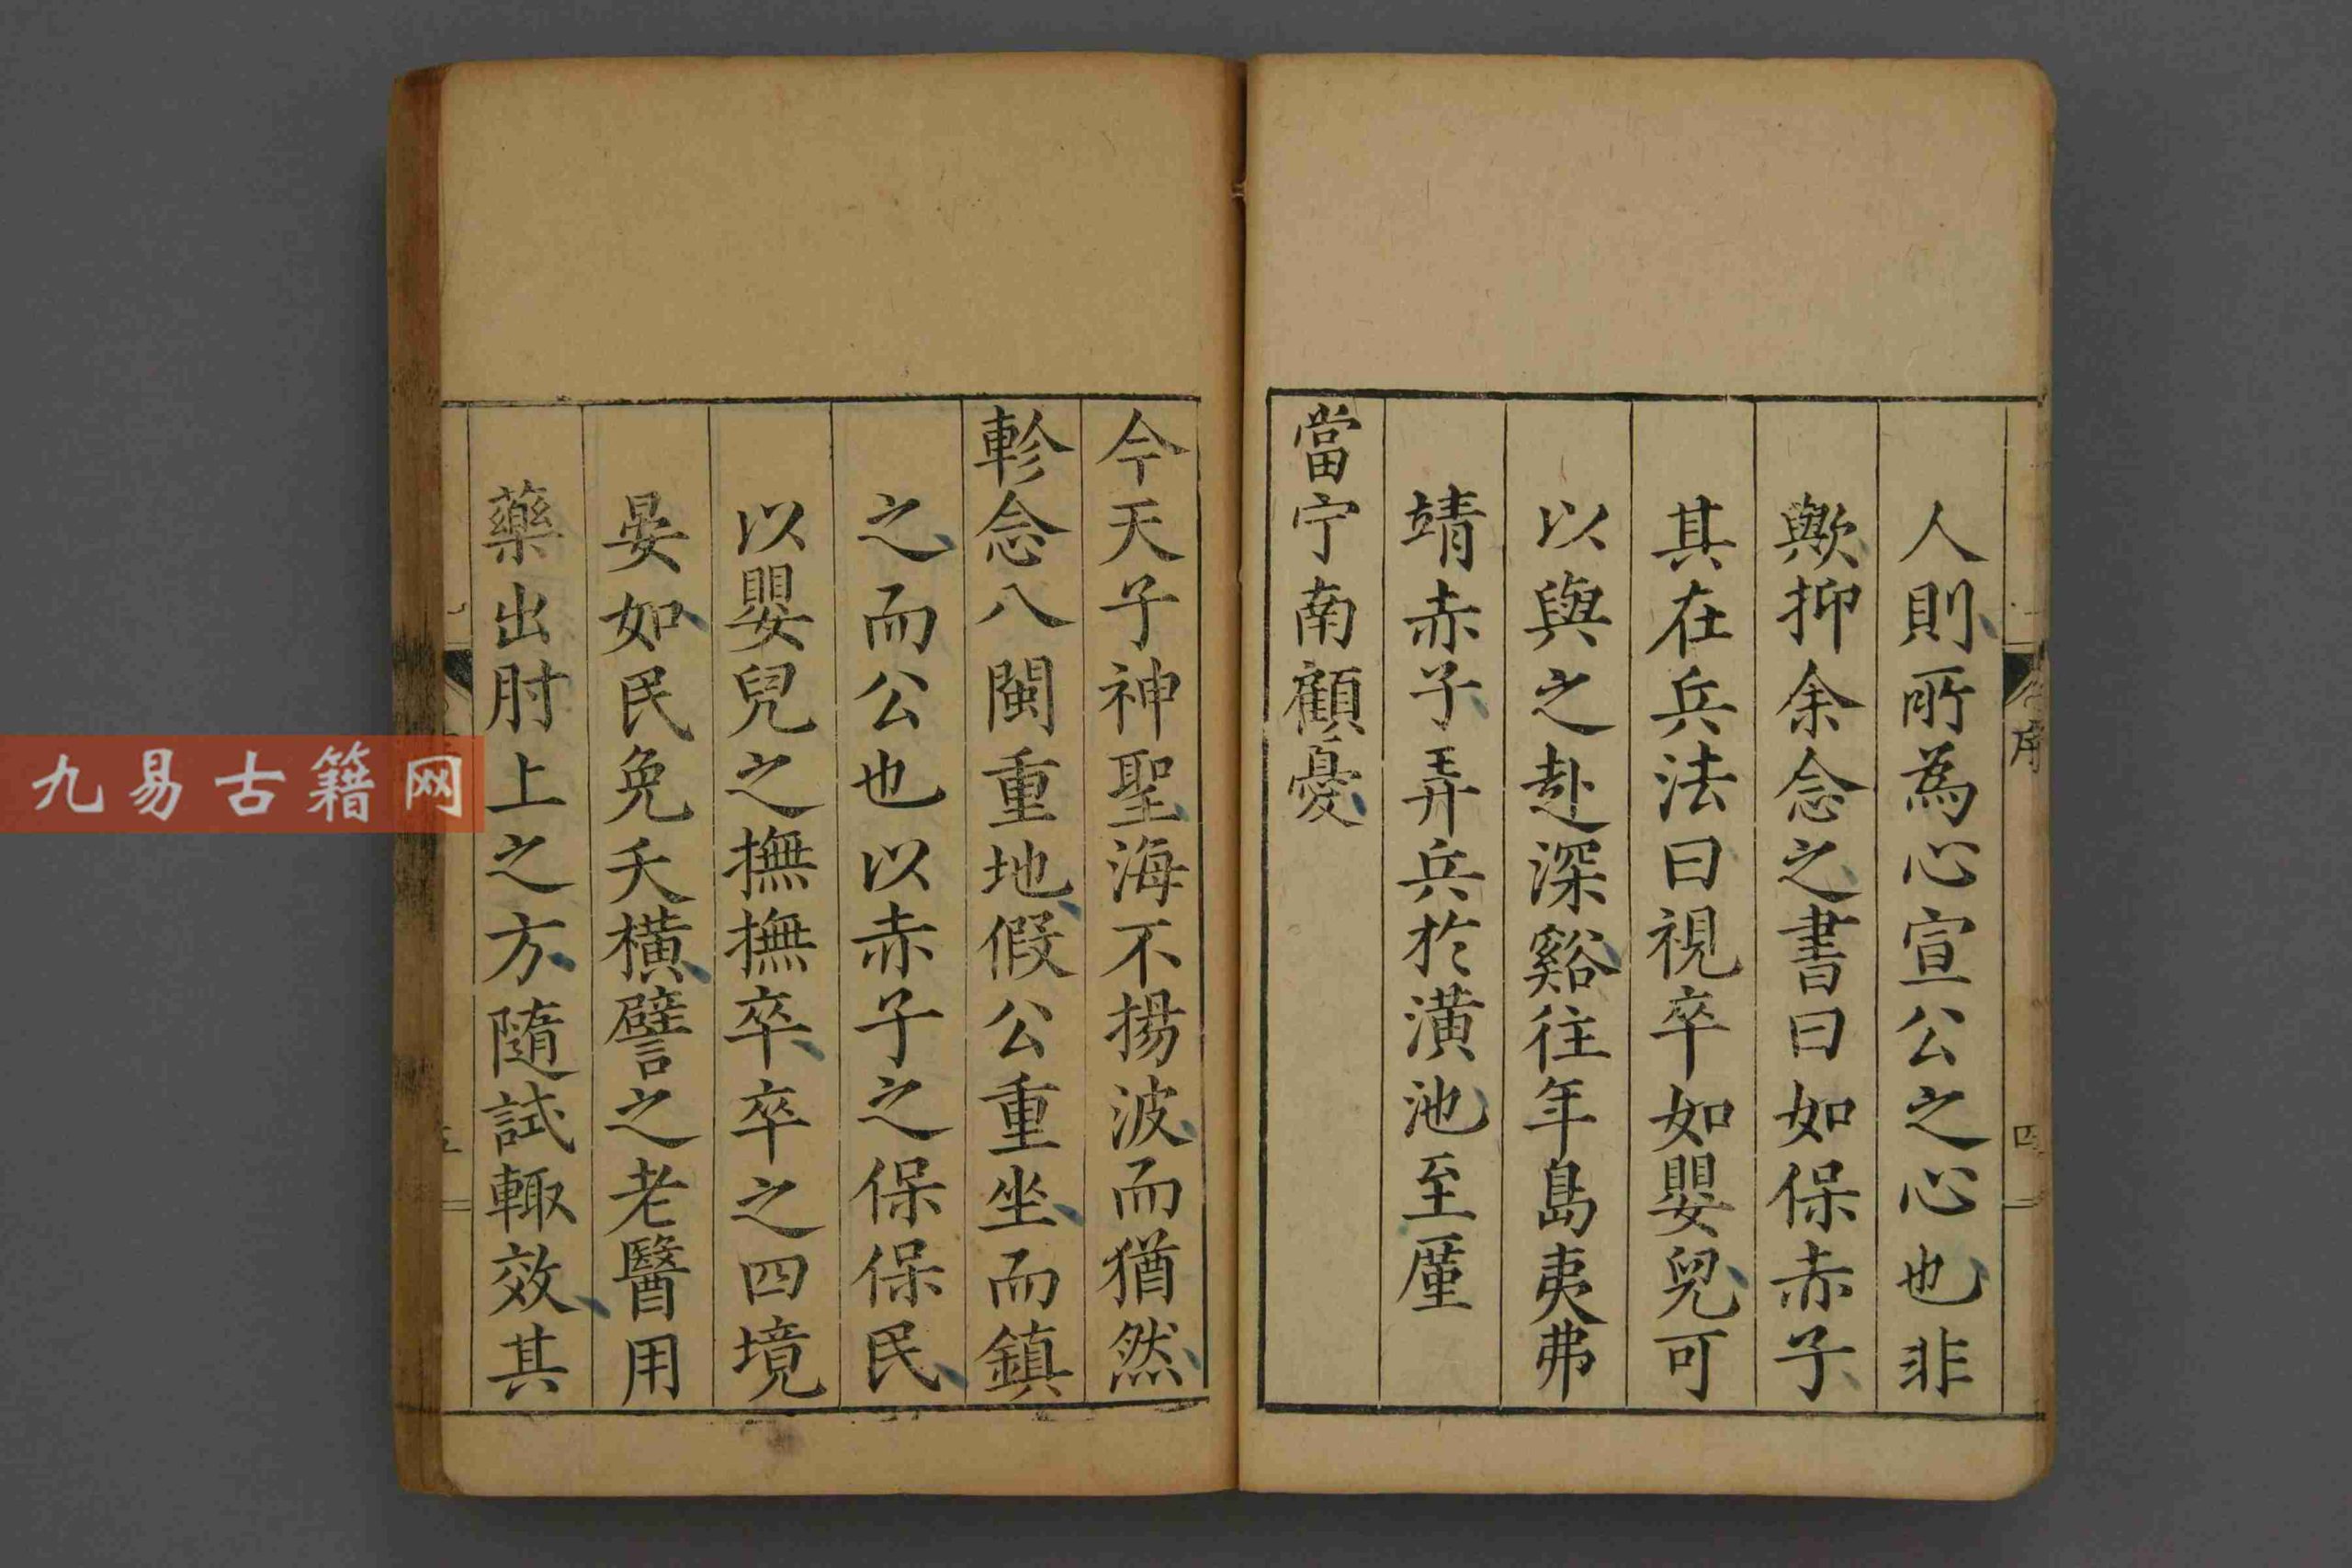 人則所為心宣公之心也非
歟抑余念之書曰如保赤子
其在兵法曰視卒如嬰兒可
以與之赴深谿往年島夷弗
靖赤子弄兵於潢池至廑
當宁南顧憂
今天子神聖海不揚波而猶然
軫念八閩重地假公重坐而鎮
之而公也以赤子之保保民
以嬰兒之撫撫卒卒之四境
晏如民免夭橫譬之老醫用
藥出肘上之方隨試輙效其
序
四
九易古籍网